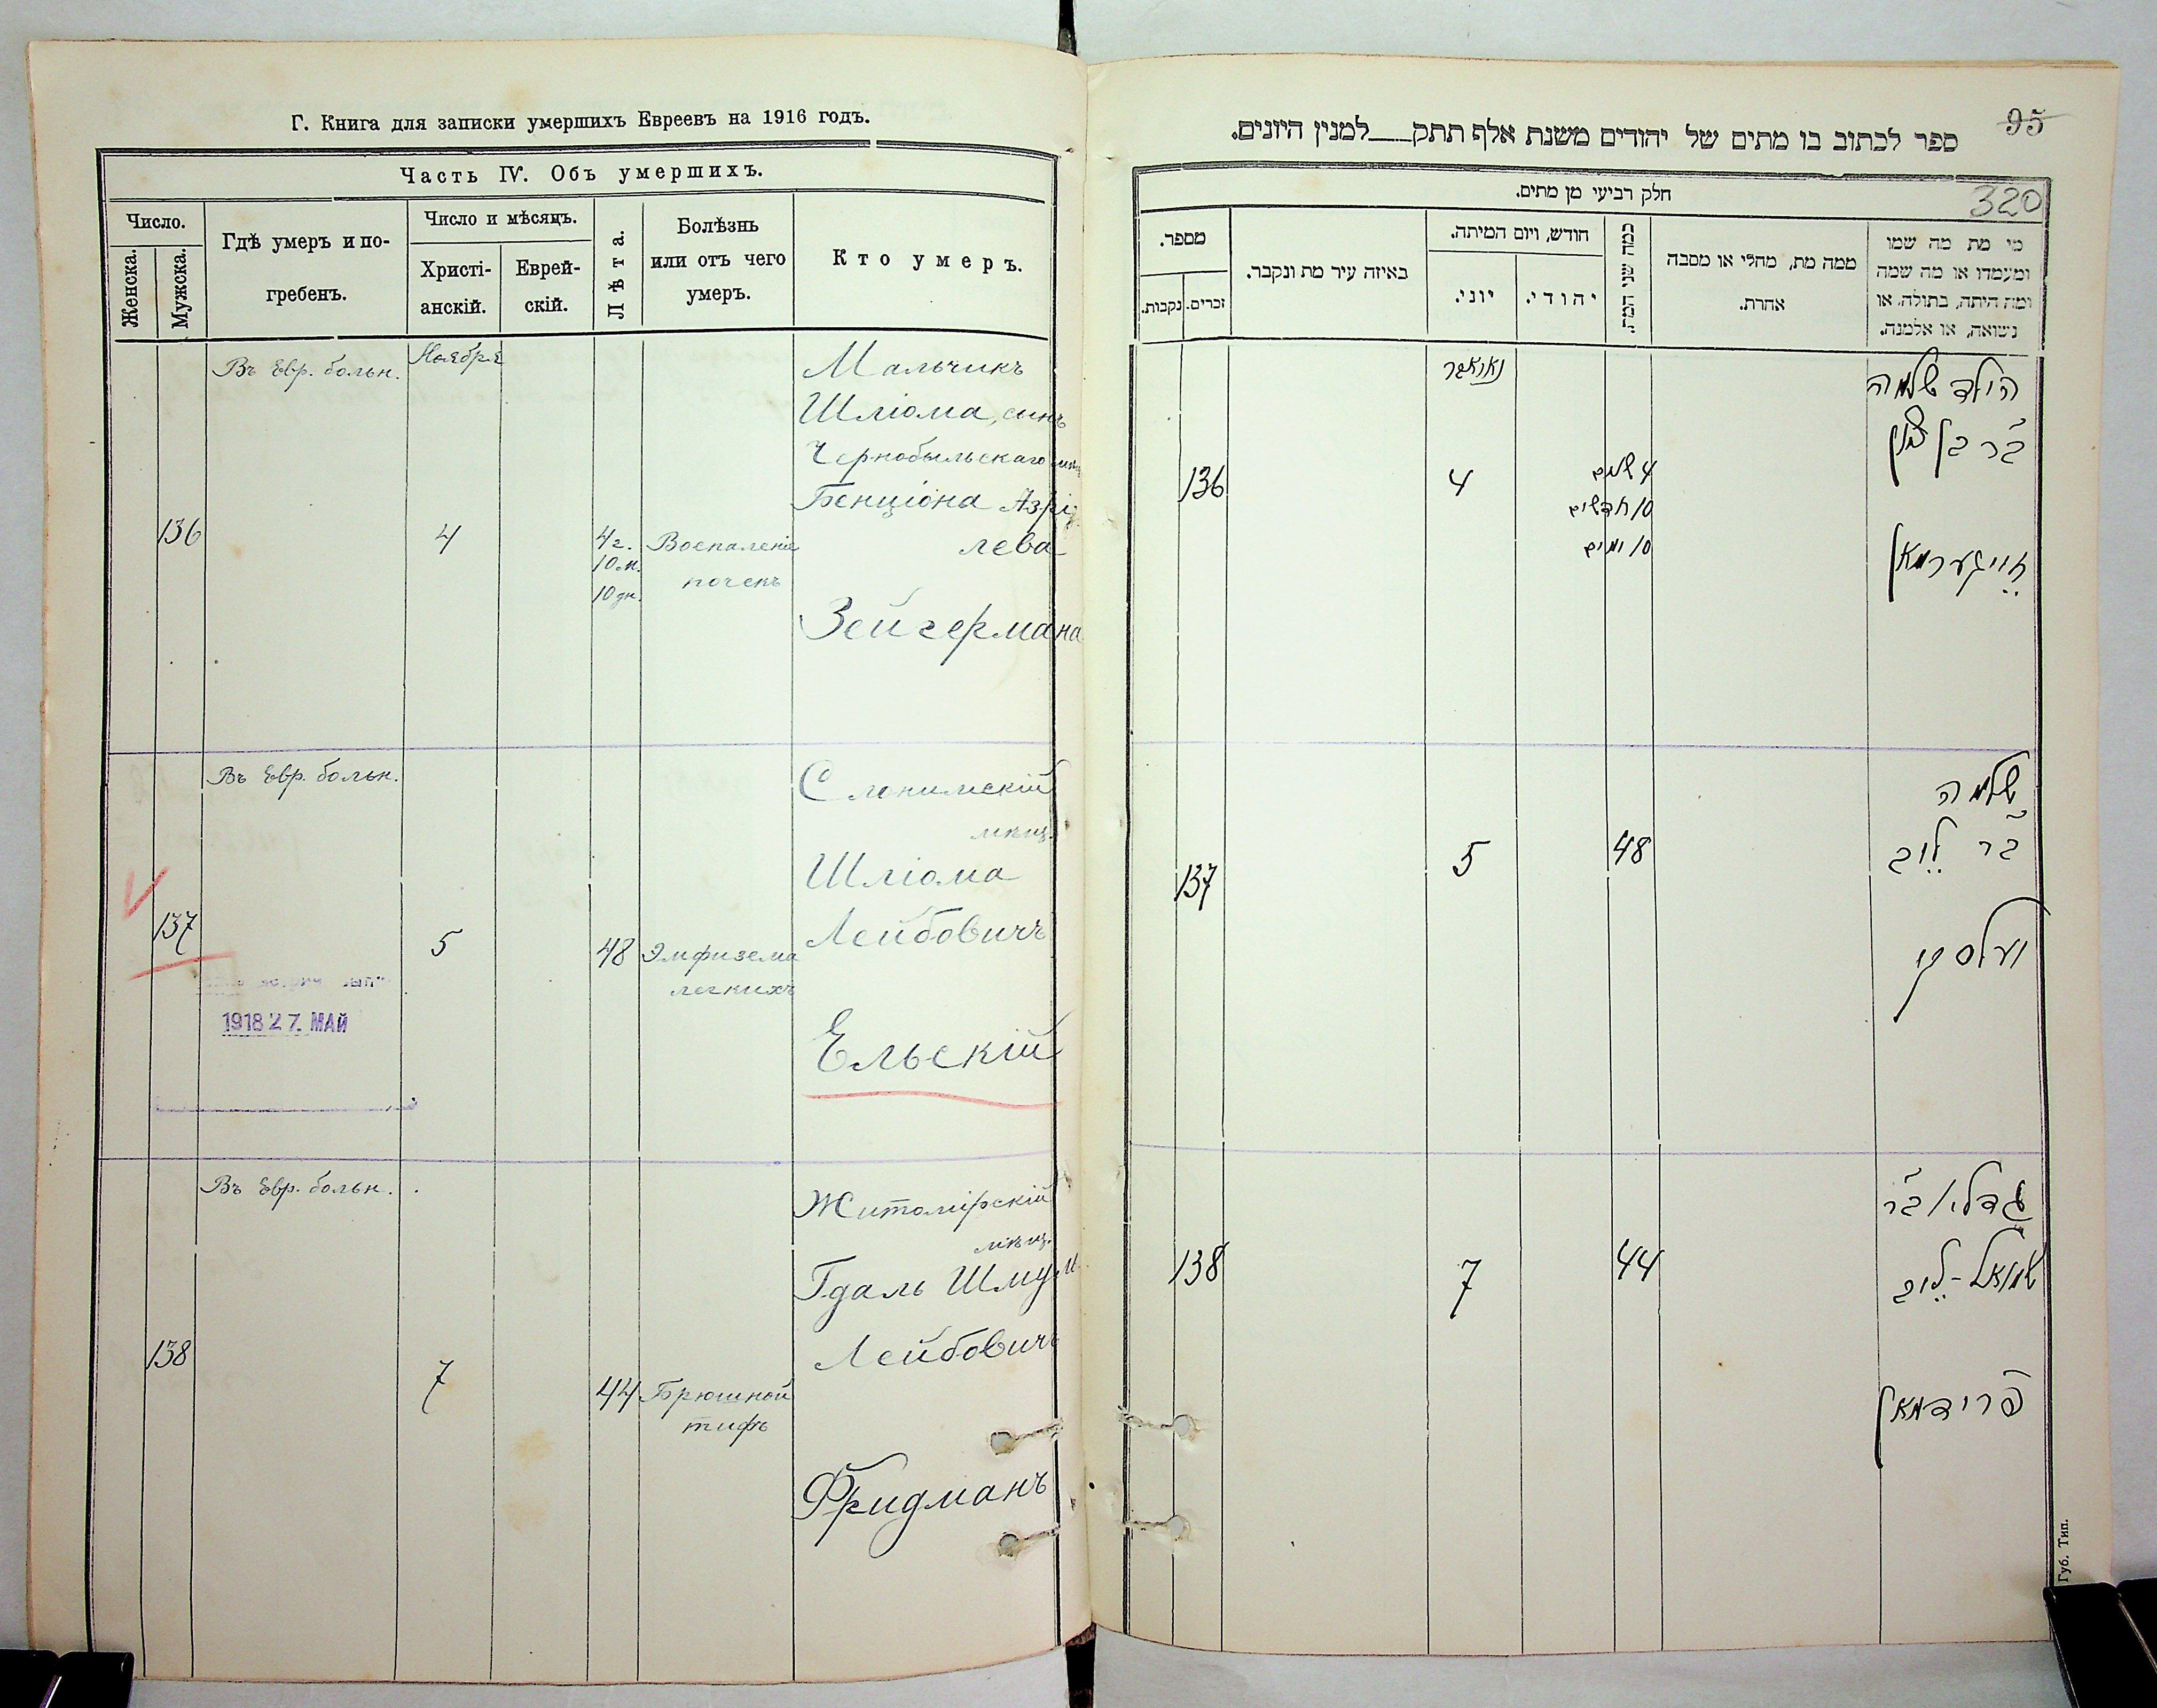 Г. Книга для записки умершихъ Евреевъ на 1916 годъ.
Часть IV. Объ умершихъ.
Число.
Женска.
Мужска.
Гдѣ умеръ и по-
гребенъ.
Число и мѣсяцъ.
Христі-
анскій.
Еврей-
скій.
Лѣта.
Болѣзнь
или отъ чего
умеръ.
Кто умеръ.
Въ Евр. больн.
Ноября
136
4
4 г.
10 м.
10 дн.
Воспаленіе
почекъ
Мальчикъ
Шліома, сынъ
Чернобыльскаго мѣщ
Бенціона Азрі
лева
Зейгермана
Въ Евр. больн.
137
1918 27. МАЙ
5
48
Эмфизема
легкихъ
Слонимскій
мѣщ.
Шліома
Лейбовичъ
Ельскій
Въ Евр. больн.
138
7
44
Брюшной
тифъ
Житомірскій
мѣщ.
Гдаль Шмул
Лейбовичъ
Фридманъ
95
ספר לכתוב בו מתים של יהודים משנת אלף תתק___למנין היונים.
320
חלק רביעי מן מתים.
מספר.
נקבות.
זכרים.
באיזה עיר מת ונקבר.
חודש, ויום המיתה.
יוני.
יהודי.
כמה שני המת.
ממה מת, מחלי או מסבה
אחרת.
מי מת מה שמו
ומעמדו או מה שמה
ומה היתה, בתולה, או
נשואה, או אלמנה.
נאיאבר
136
4
4 שנים
10 חדשים
10 ימים
הילד שלמה
בר בן ציון
זייגערמאן
137
5
48
שלמה
בר לייב
יעלסקי
138
7
44
גדלי' בר
שמואל-לייב
פרידמאן
Губ. Тип.